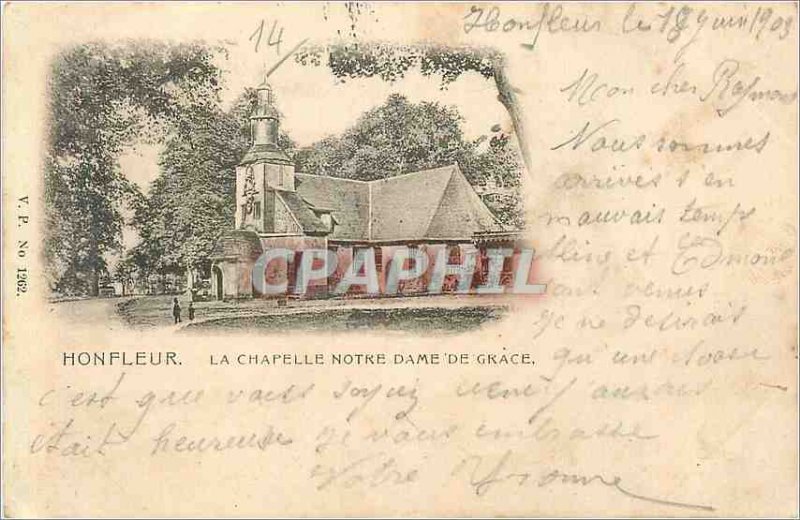 14
Honfleur le 18 Juin 1903
Mon cher Raymond
Nous sommes
arrivés en
mauvais temps
et Edmond
sont venus
Je ne désirais
qu'une chose
c'est que vous soyez
était heureuse je vous embrasse
Votre Yvonne
V. P. No 1262.
CPAPHIL
HONFLEUR. LA CHAPELLE NOTRE DAME DE GRACE.